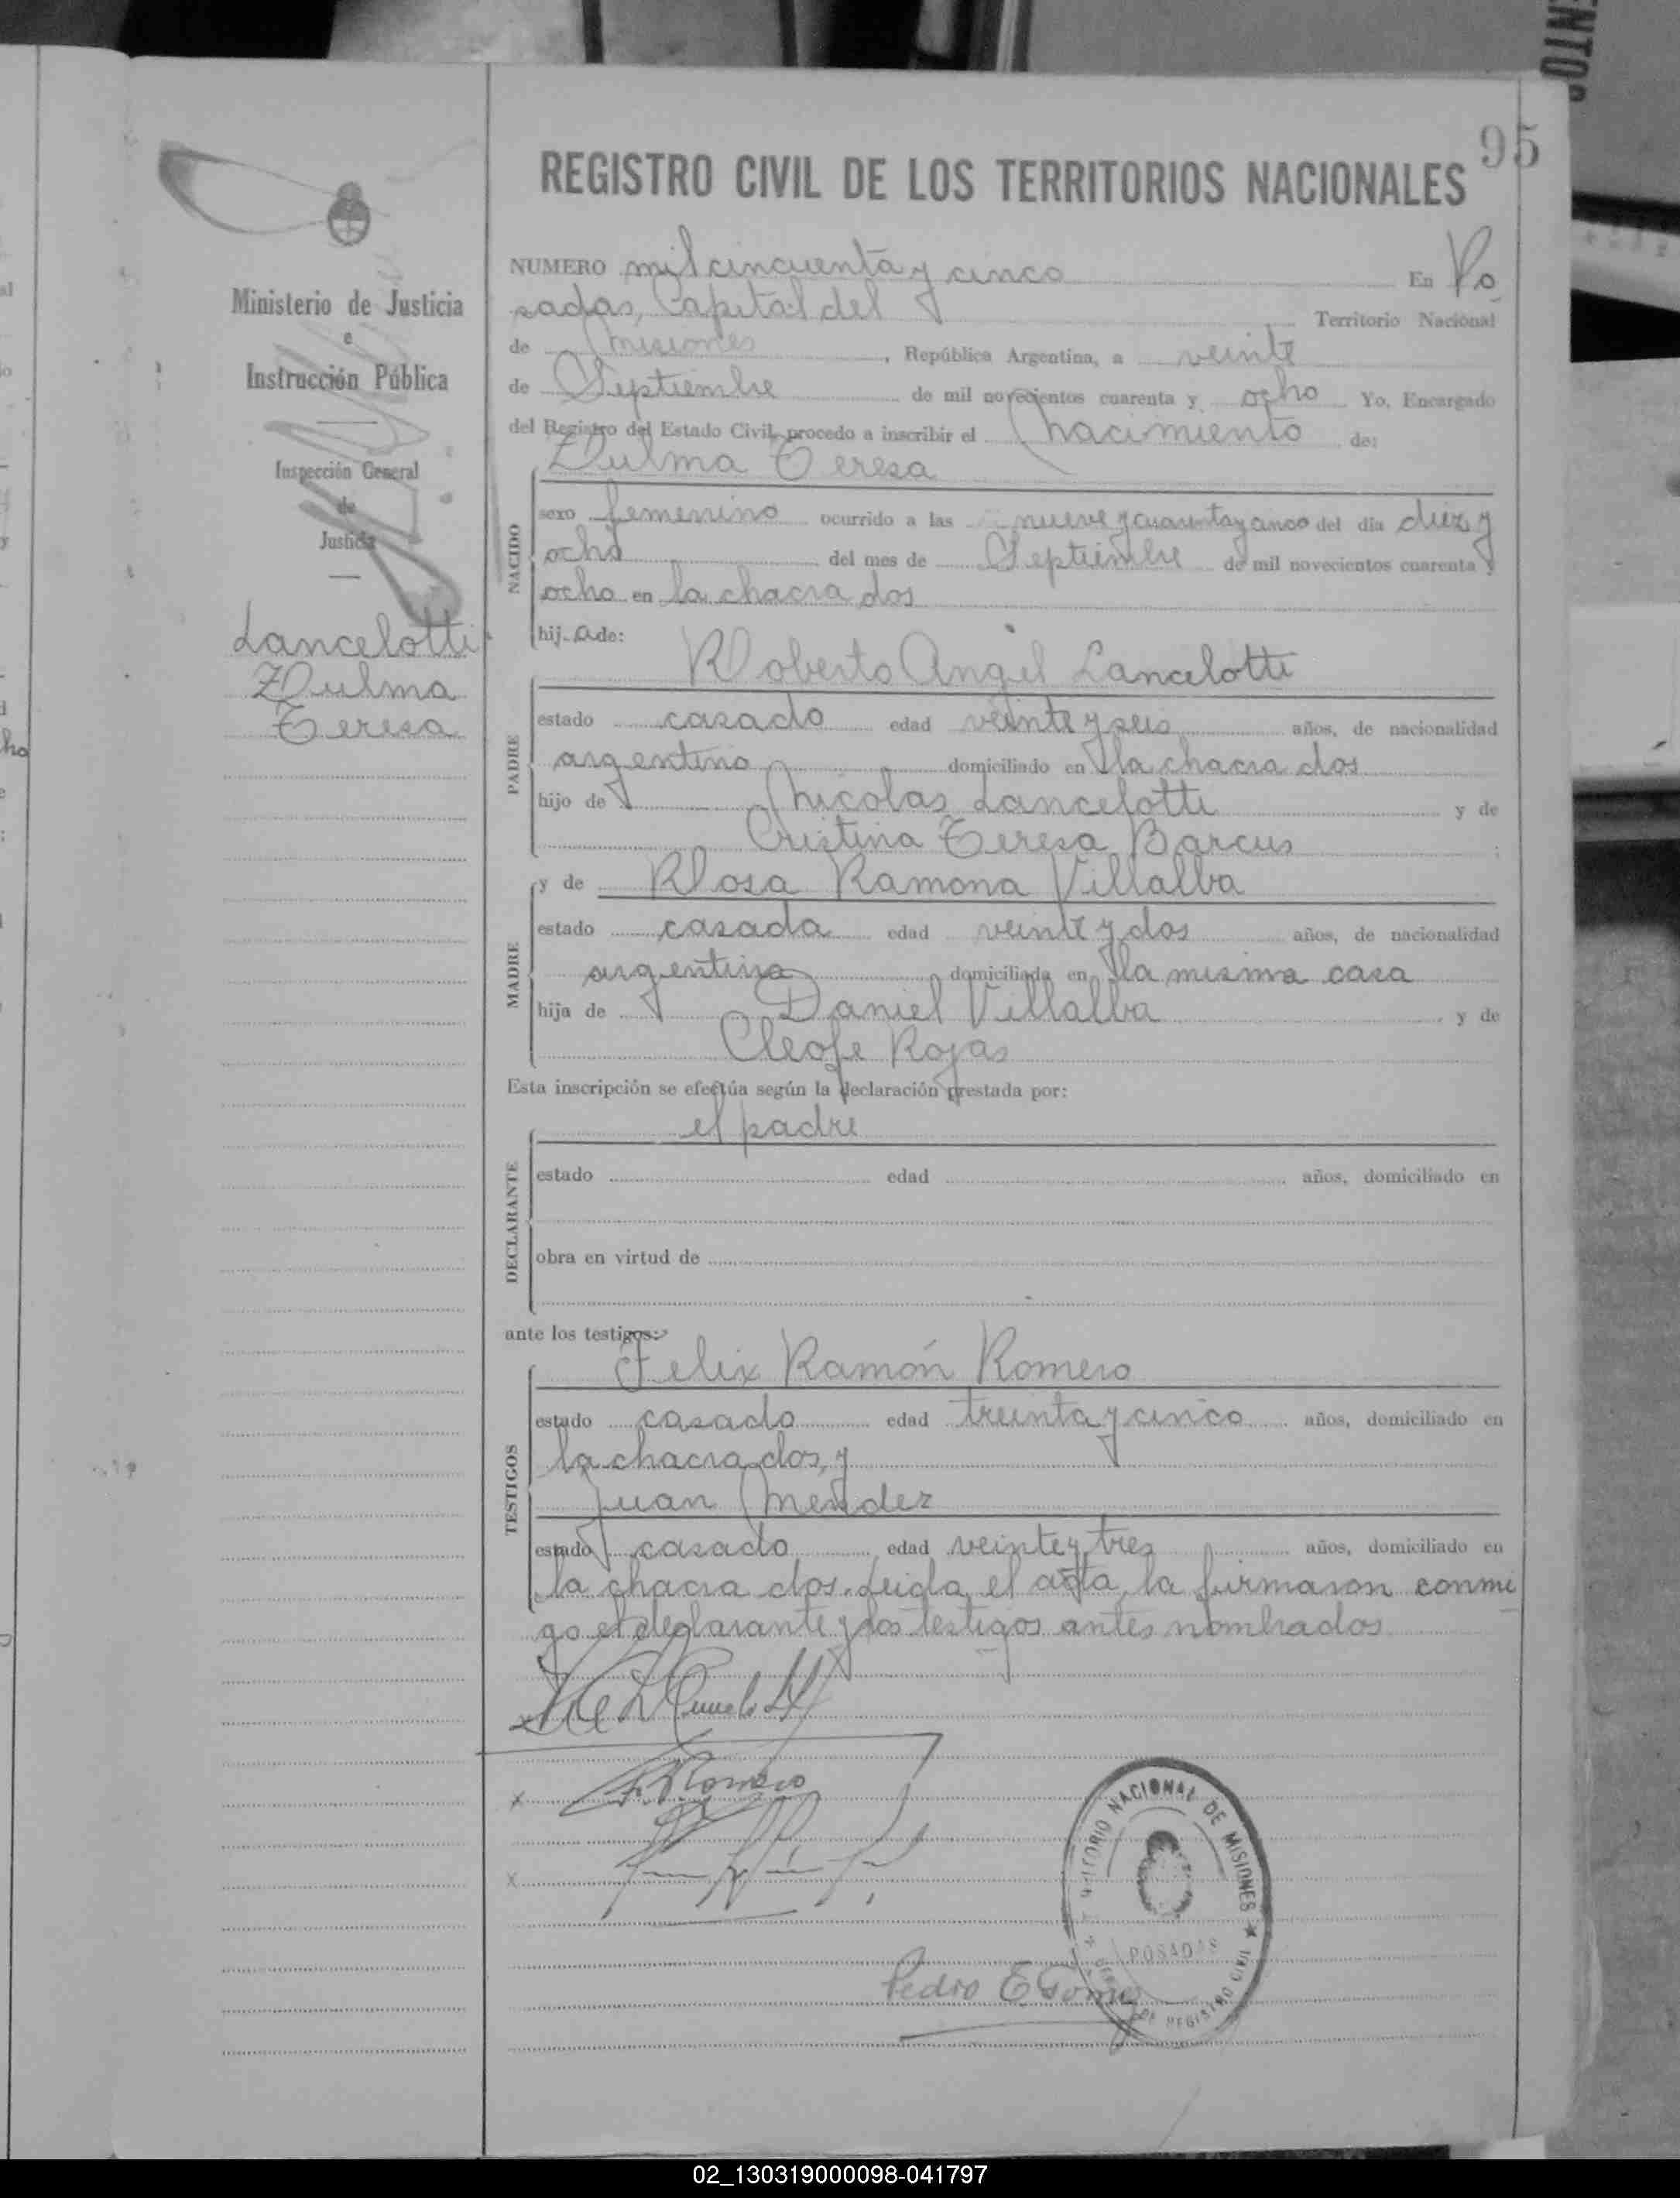 95
REGISTRO CIVIL DE LOS TERRITORIOS NACIONALES
Ministerio de Justicia
e
Instrucción Pública
Inspección General
de
Justicia
Lancelotti
Zulma
Teresa
NUMERO mil cincuenta y cinco En Po
sadas, Capital del Territorio Nacional
de Misiones, República Argentina, a veinte
de Septiembre de mil novecientos cuarenta y ocho Yo, Encargado
del Registro del Estado Civil, procedo a inscribir el Nacimiento de:
Zulma Teresa
NACIDO
sexo femenino ocurrido a las nueve y cuarenta y cinco del día diez y
ocho del mes de Septiembre de mil novecientos cuarenta y
ocho en la chacra dos
hija de:
Roberto Angel Lancelotti
PADRE
estado casado edad veinte y seis años, de nacionalidad
argentino domiciliado en la chacra dos
hijo de Nicolas Lancelotti y de
Cristina Teresa Barcus
y de Rosa Ramona Villalba
MADRE
estado casada edad veinte y dos años, de nacionalidad
argentina domiciliada en la misma casa
hija de Daniel Villalba y de
Cleofe Rojas
Esta inscripción se efectúa según la declaración prestada por:
el padre
DECLARANTE
estado edad años, domiciliado en
obra en virtud de
ante los testigos:
Felix Ramón Romero
TESTIGOS
estado casado edad treinta y cinco años, domiciliado en
la chacra dos, y
Juan Mendez
estado casado edad veinte y tres años, domiciliado en
la chacra dos. Leida el acta, la firmaron conmi
go el declarante y los testigos antes nombrados
x
x F. R. Romero
x
Pedro E. Gomez
TERRITORIO NACIONAL DE MISIONES
POSADAS
DE REGISTRO CIVIL
02_130319000098-041797